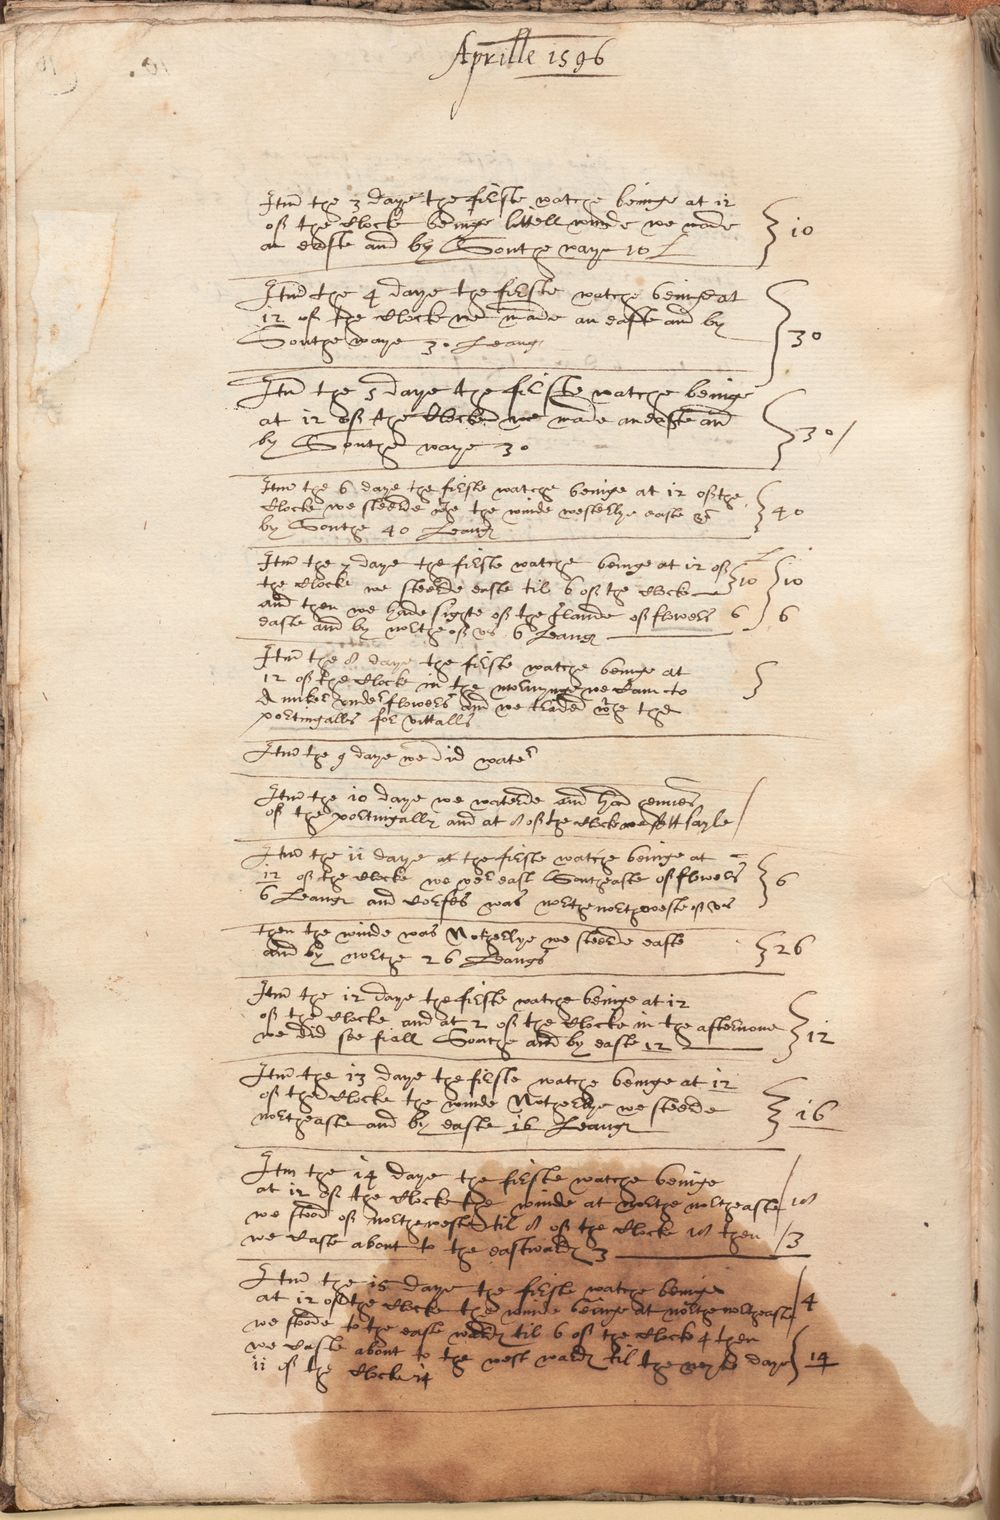 Aprille 1596
Itm the 3 daye the firste watche beinge at 12
of the Clocke beinge littell winde we made
an easte and by Southe waye 10 L } 10
Itm the 4 daye the firste watche beinge at
12 of the Clocke we made an easte and by
Southe waye 30 Leaug } 30
Itm the 5 daye the firste watche beinge
at 12 of the Clocke we made an easte and
by Southe waye 30 } 30 /
Itm the 6 daye the firste watche beinge at 12 of the
Clocke we steerde wth the winde westerlye easte
by Southe 40 Leaug } 40
Itm the 7 daye the firste watche beinge at 12 of
the Clocke we steerde easte til 6 of the Clocke } 10 } 10
and then we hade sighte of the Ilande of flowers 6 } 6
easte and by northe of vs 6 Leaug
Itm the 8 daye the firste watche beinge at
12 of the Clocke in the mornynge we Cam to
Anuker vnder flowers and we traded wth the }
portingalls for vittalls
Itm the 9 daye we did water
Itm the 10 daye we waterde and had
of the portingally and at 8 of the Clocke we sett sayle /
Itm the 11 daye at the firste watche beinge at
12 of the Clocke we wer east Southeaste of flowers } 6
6 Leaug and Corfes was northe northeweste of vs
then the winde was Notherlye we steerde easte
and by northe 26 Leaugs } 26
Itm the 12 daye the firste watche beinge at 12
of the Clocke and at 2 of the Clocke in the afternone
we did see fiall Southe and by easte 12 } 12
Itm the 13 daye the firste watche beinge at 12
of the Clocke the winde Notherlye we steerde
northeaste and by easte 16 Leaug } 16
Itm the 14 daye the firste watche beinge
at 12 of the Clocke the winde at northe northeaste / 18
we stood of northeweste til 8 of the Clocke 18 then
we Caste about to the eastward 3 / 3
Itm the 15 daye the firste watche beinge
at 12 of the Clocke the winde beinge at northe northeaste / 4
we stoode to the easte ward til 6 of the Clocke 4 then
we Caste about to the west ward til the nexte daye } 14
11 of the Clocke 14